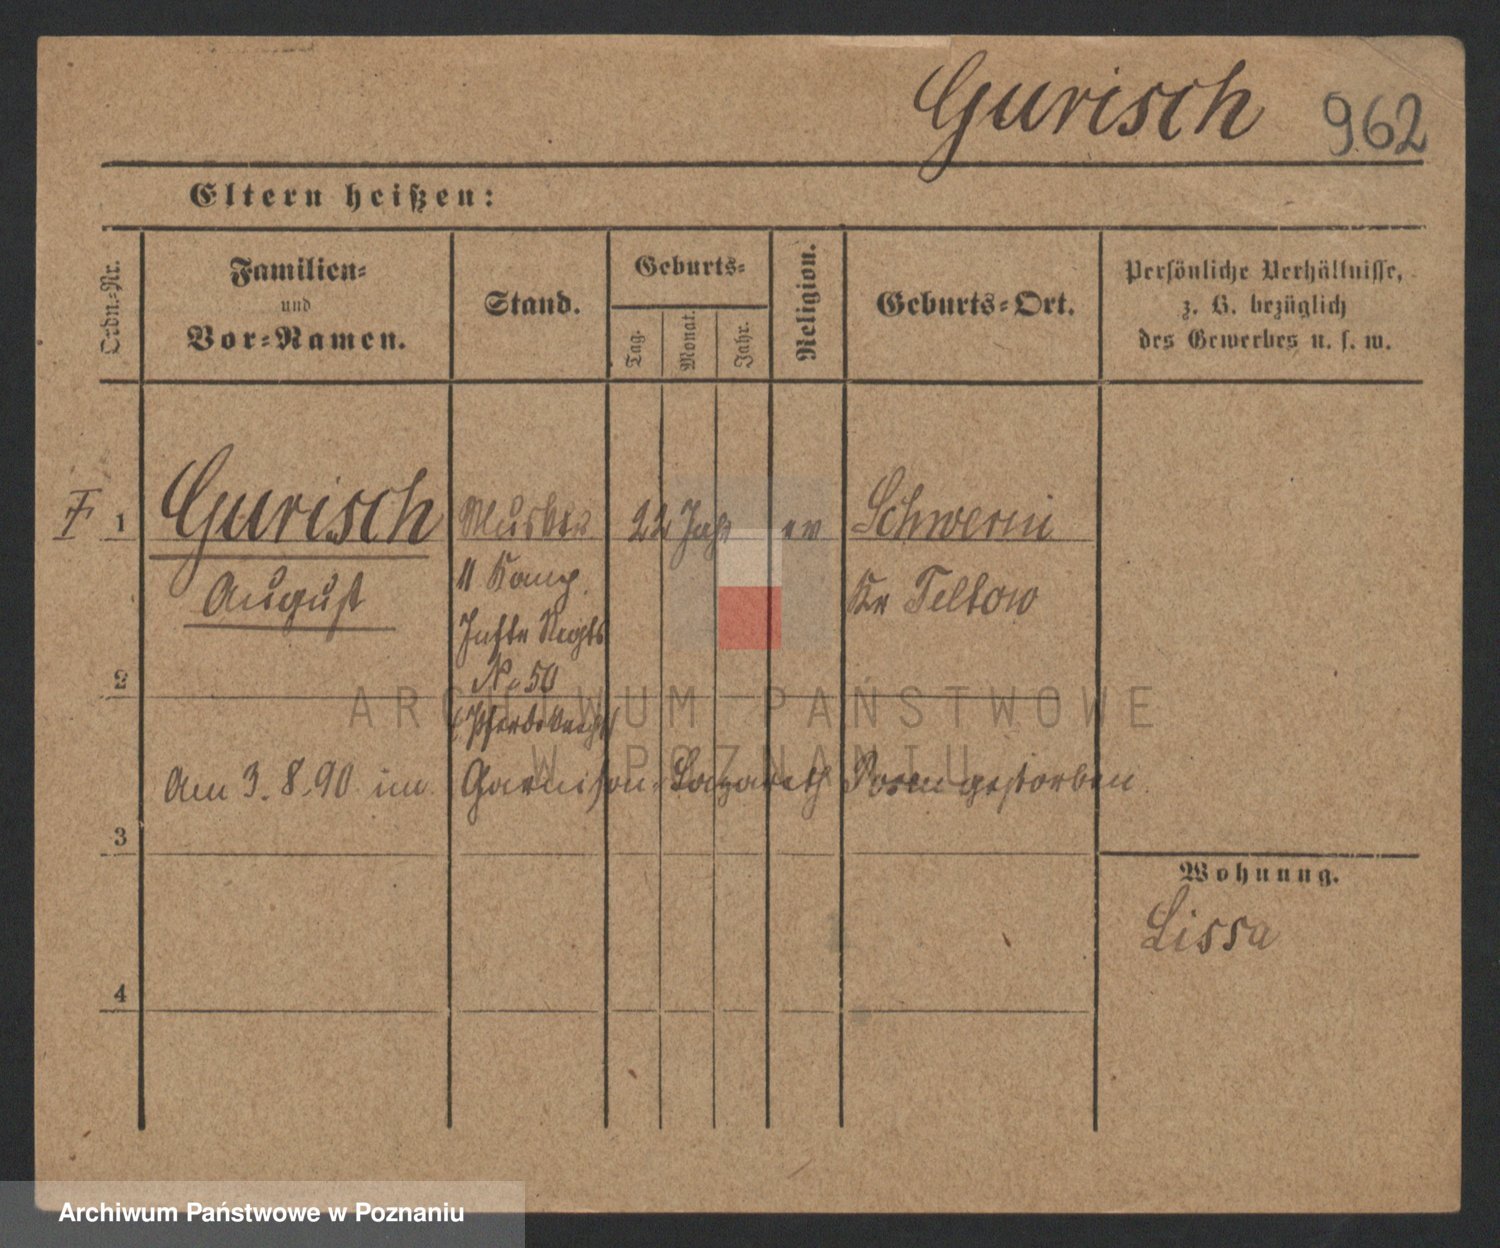 Gurisch 962
Eltern heißen:
Ordn.-Nr.
Familien-
und
Vor-Namen.
Stand.
Geburts-
Tag.
Monat.
Jahr.
Religion.
Geburts-Ort.
Persönliche Verhältnisse,
z. B. bezüglich
des Gewerbes u. s. w.
1 Gurisch Musktr 22 Jahr ev Schwerin
August 11 Komp. Kr Teltow
Inftr Regts
2 No 50
(Pferdeknecht)
Am 3.8.90 im Garnison-Lazareth Posen gestorben.
3
Wohnung.
Lissa
4
ARCHIWUM PAŃSTWOWE
W POZNANIU
Archiwum Państwowe w Poznaniu